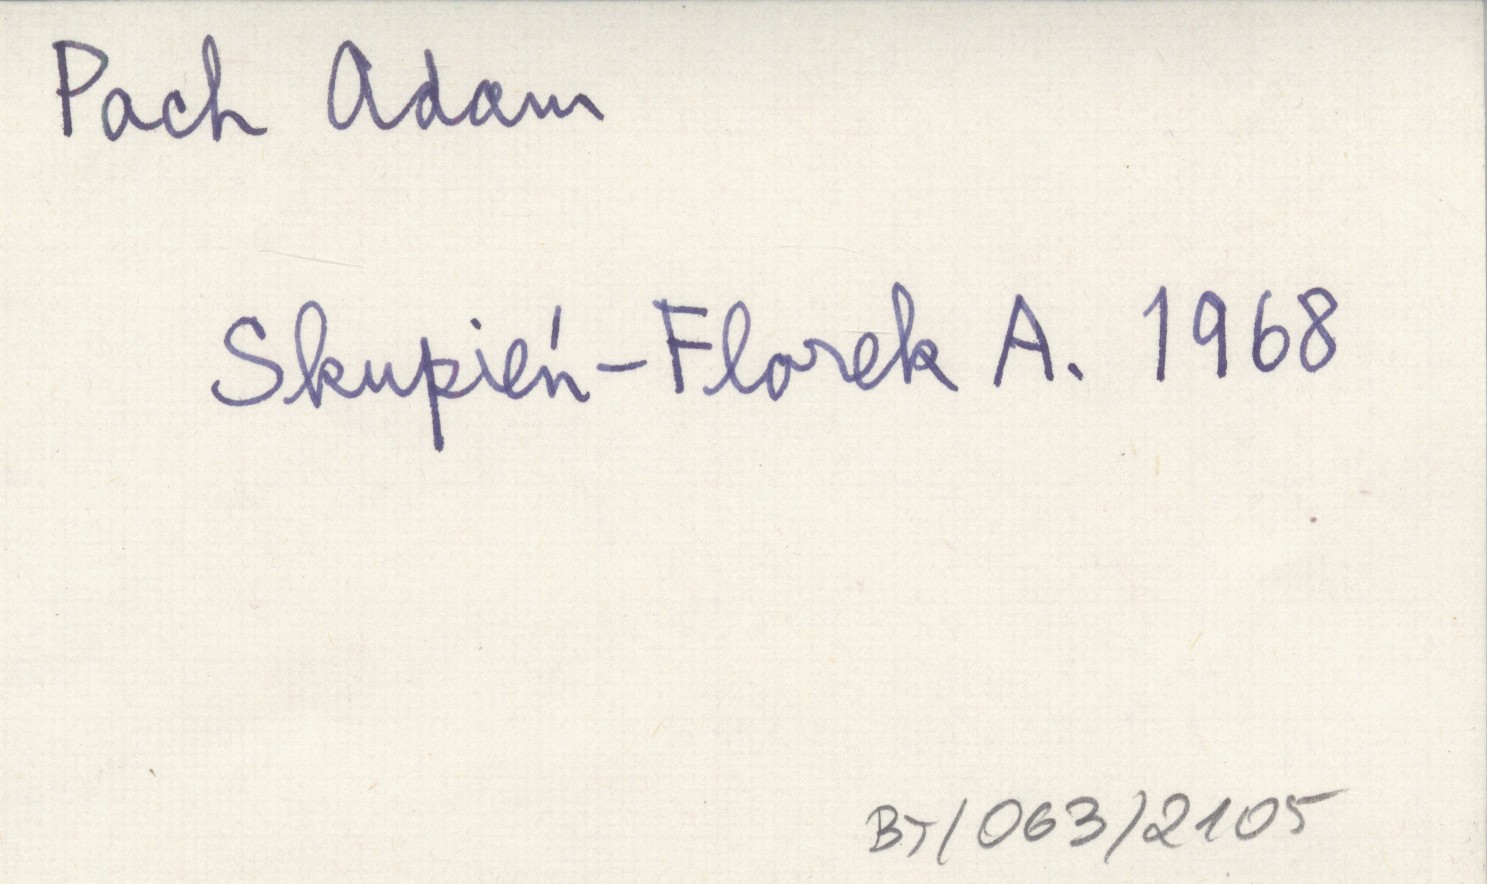 Pach Adam
Skupień-Florek A. 1968
BT/063/2105